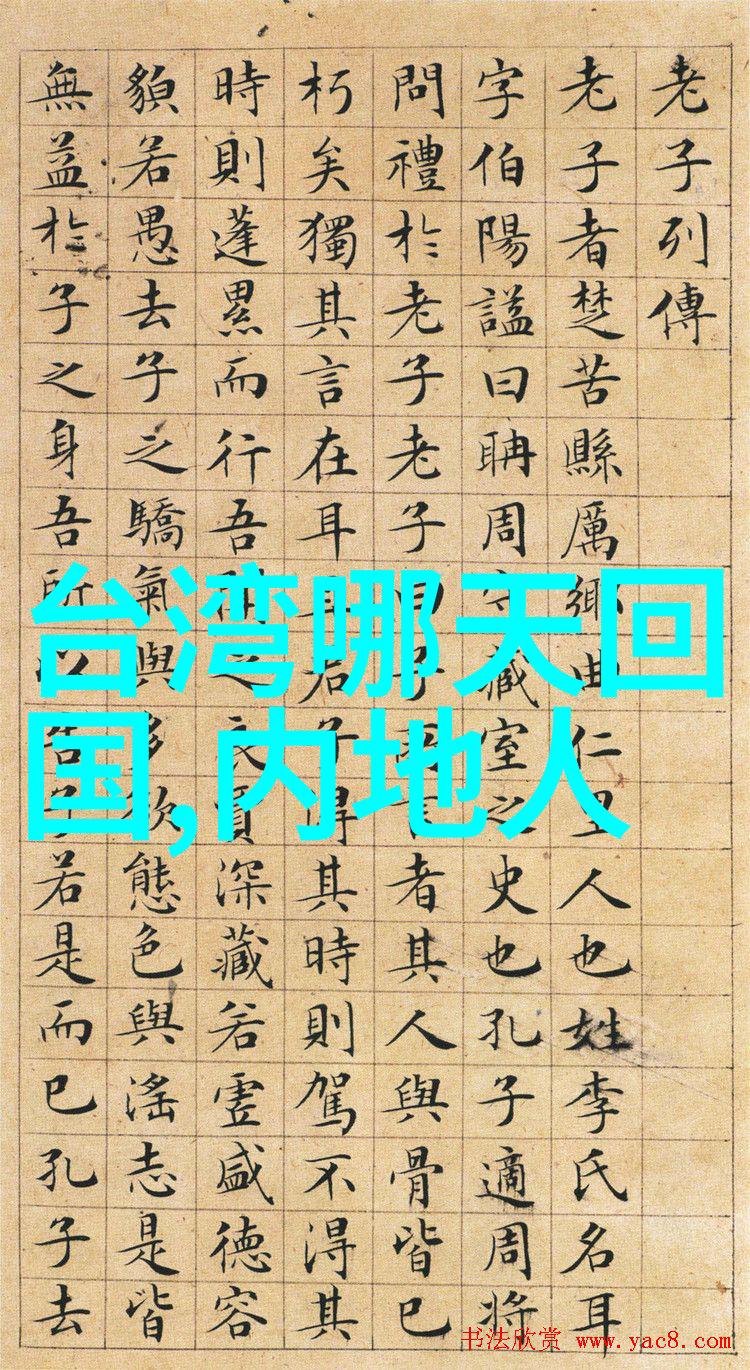 老子列傳
老子者楚苦縣厲鄉曲仁里人也姓李氏名耳
字伯陽謚曰聃周守藏室之史也孔子適周將
問禮於老子老子曰子所言者其人與骨皆已
朽矣獨其言在耳且君子得其時則駕不得其
時則蓬累而行吾聞之良賈深藏若虛盛德容
貌若愚去子之驕氣與多欲態色與滛志是皆
無益於子之身吾所以告子若是而已孔子去
台湾哪天回
国,内地人
书法欣赏 www.yac8.com